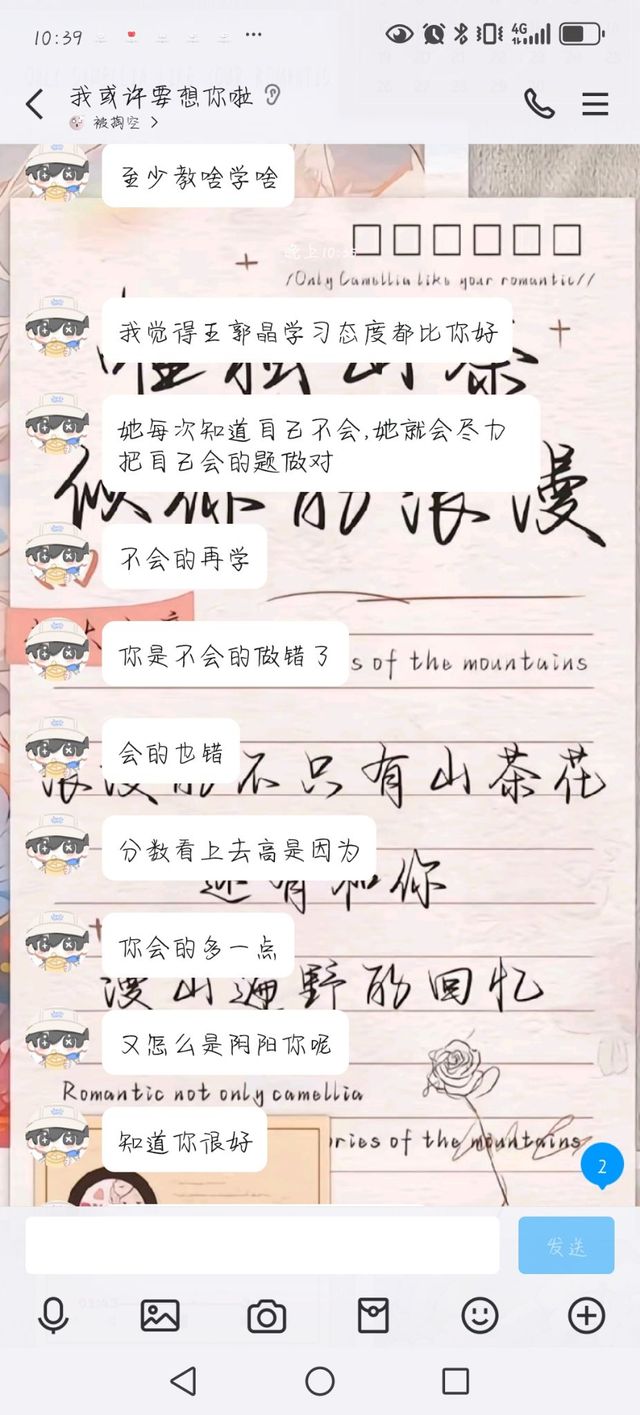 10:39
4G
我或许要想你啦
被掏空 >
至少教啥学啥
/Only Camellia like your romantic//
我觉得王郭晶学习态度都比你好
她每次知道自己不会,她就会尽力
把自己会的题做对
似你的浪漫
不会的再学
你是不会的做错了
s of the mountains
会的也错
浪漫的不只有山茶花
分数看上去高是因为
还有和你
你会的多一点
漫山遍野的回忆
又怎么是阴阳你呢
Romantic not only camellia
知道你很好
ries of the mountains
2
发送